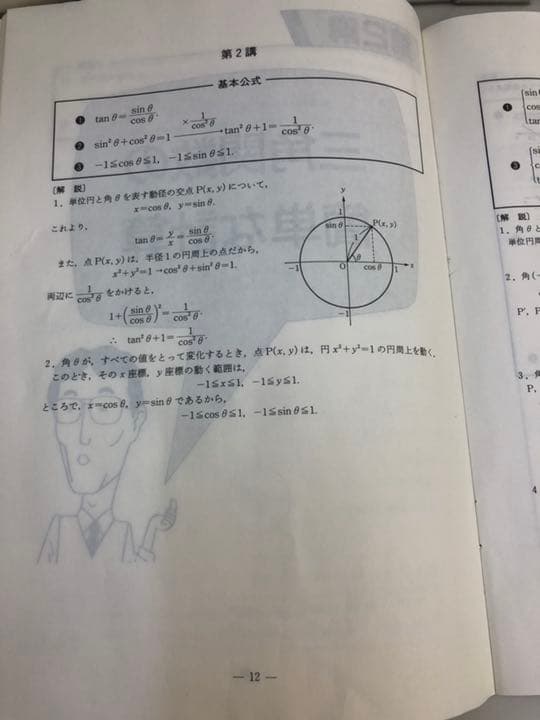 第2講
基本公式
❶ tanθ=sinθ/cosθ.
❷ sin²θ+cos²θ=1 ×1/cos²θ→ tan²θ+1=1/cos²θ.
❸ −1≦cosθ≦1, −1≦sinθ≦1.
〔解 説〕
1. 単位円と角θを表す動径の交点P(x, y)について,
x=cosθ, y=sinθ.
これより,
tanθ=y/x=sinθ/cosθ.
また, 点P(x, y)は, 半径1の円周上の点だから,
x²+y²=1→cos²θ+sin²θ=1.
両辺に1/cos²θをかけると,
1+(sinθ/cosθ)²=1/cos²θ.
∴ tan²θ+1=1/cos²θ.
y
1
sinθ
P(x, y)
1
θ
−1
O
cosθ
1
x
−1
2. 角θが, すべての値をとって変化するとき, 点P(x, y)は, 円x²+y²=1の円周上を動く.
このとき, そのx座標, y座標の動く範囲は,
−1≦x≦1, −1≦y≦1.
ところで, x=cosθ, y=sinθであるから,
−1≦cosθ≦1, −1≦sinθ≦1.
— 12 —
❶
sin
co
tan
❸
si
c
t
〔解 説〕
1. 角θと
単位円
2. 角(−
P', P
3. 角
P,
4